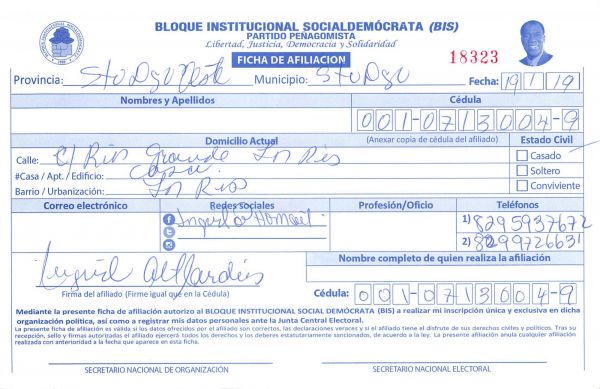 BLOQUE INSTITUCIONAL SOCIALDEMÓCRATA (BIS)
PARTIDO PEÑAGOMISTA
Libertad, Justicia, Democracia y Solidaridad
FICHA DE AFILIACION
18323
Provincia: Sto Dgo Oeste Municipio: Sto Dgo Fecha: 19/1/19
Nombres y Apellidos Cédula
001-0713004-9
Domicilio Actual (Anexar copia de cédula del afiliado) Estado Civil
Calle: C/ Rio Grande Los Rios Casado
#Casa / Apt. / Edificio: Casa Soltero
Barrio / Urbanización: Los Rios Conviviente
Correo electrónico Redes sociales Profesión/Oficio Teléfonos
1) 8295937672
2) 8299726631
Nombre completo de quien realiza la afiliación
Firma del afiliado (Firme igual que en la Cédula) Cédula: 001-0713004-9
Mediante la presente ficha de afiliación autorizo al BLOQUE INSTITUCIONAL SOCIAL DEMÓCRATA (BIS) a realizar mi inscripción única y exclusiva en dicha
organización política, así como a registrar mis datos personales ante la Junta Central Electoral.
La presente ficha de afiliación es válida si los datos ofrecidos por el afiliado son correctos, las declaraciones veraces y si el afiliado tiene el disfrute de sus derechos civiles y políticos. Tras su
recepción, sello y firmas autorizadas el afiliado ejercerá todos los derechos y los deberes estatutariamente sancionados, de acuerdo a la ley. La presente afiliación anula cualquier afiliación
realizada con anterioridad a la fecha que aparece en esta ficha.
SECRETARIO NACIONAL DE ORGANIZACIÓN SECRETARIO NACIONAL ELECTORAL